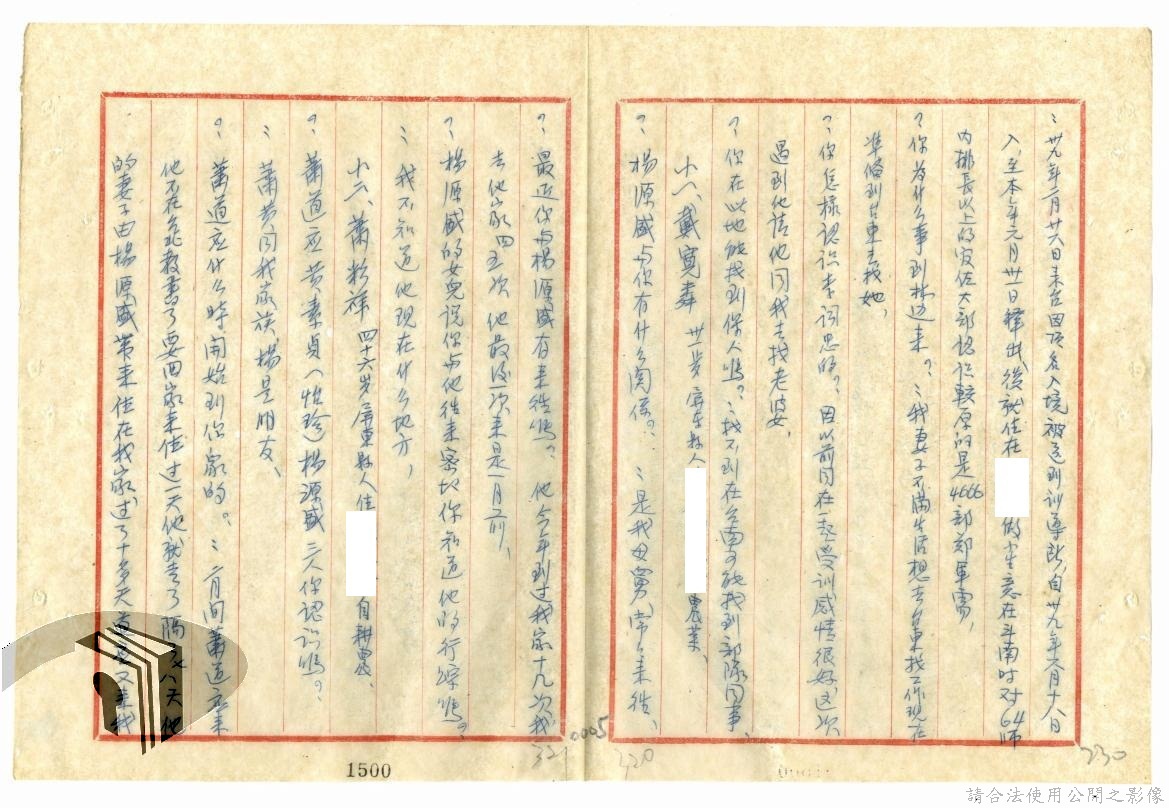 ：卅九年二月廿八日来在因 入境被送到訓導所自卅九年 月十八日
入至本年元月卅一日釋出後就住在 做生意在斗南时对64师
内排長以上的官佐大部認识較 的是4666部郑軍需，
？你为什么事到林边来？：我妻子不满生活想去台東找工作現在
準备到台東去找她，
？你怎樣認识李詞思的？因以前同在一起受训感情很好这次
遇到他请他同我去找老婆，
？你在此地能找到保人嗎？：找不到在台南可能找到部隊同事，
十八、戴寬 卅一岁屏东县人 農業、
？楊源盛与你有什么関係？：是我母舅常来往、
？最近你与楊源盛有来往嗎？他今年到过我家十九次我
去他家四五次他最后一次来是一月前，
？楊源盛的女兒说你与他往来密切你知道他的行踪嗎？
：我不知道他現在什么地方，
十六、蕭 祥四十六岁屏東县人住 自耕農、
？蕭道应黄素貞（怡珍）楊源盛三人你認识嗎？
：蕭黄同我家族楊是朋友、
？蕭道应什么時間始到你家的？：二月间蕭道应来
他不在台北教書了要回家来住过一天他就走了隔 八天他
的妻子由楊源盛带来住在我家过了十多天 又来我
0005
321
320
230
1500
請合法使用公開之影像